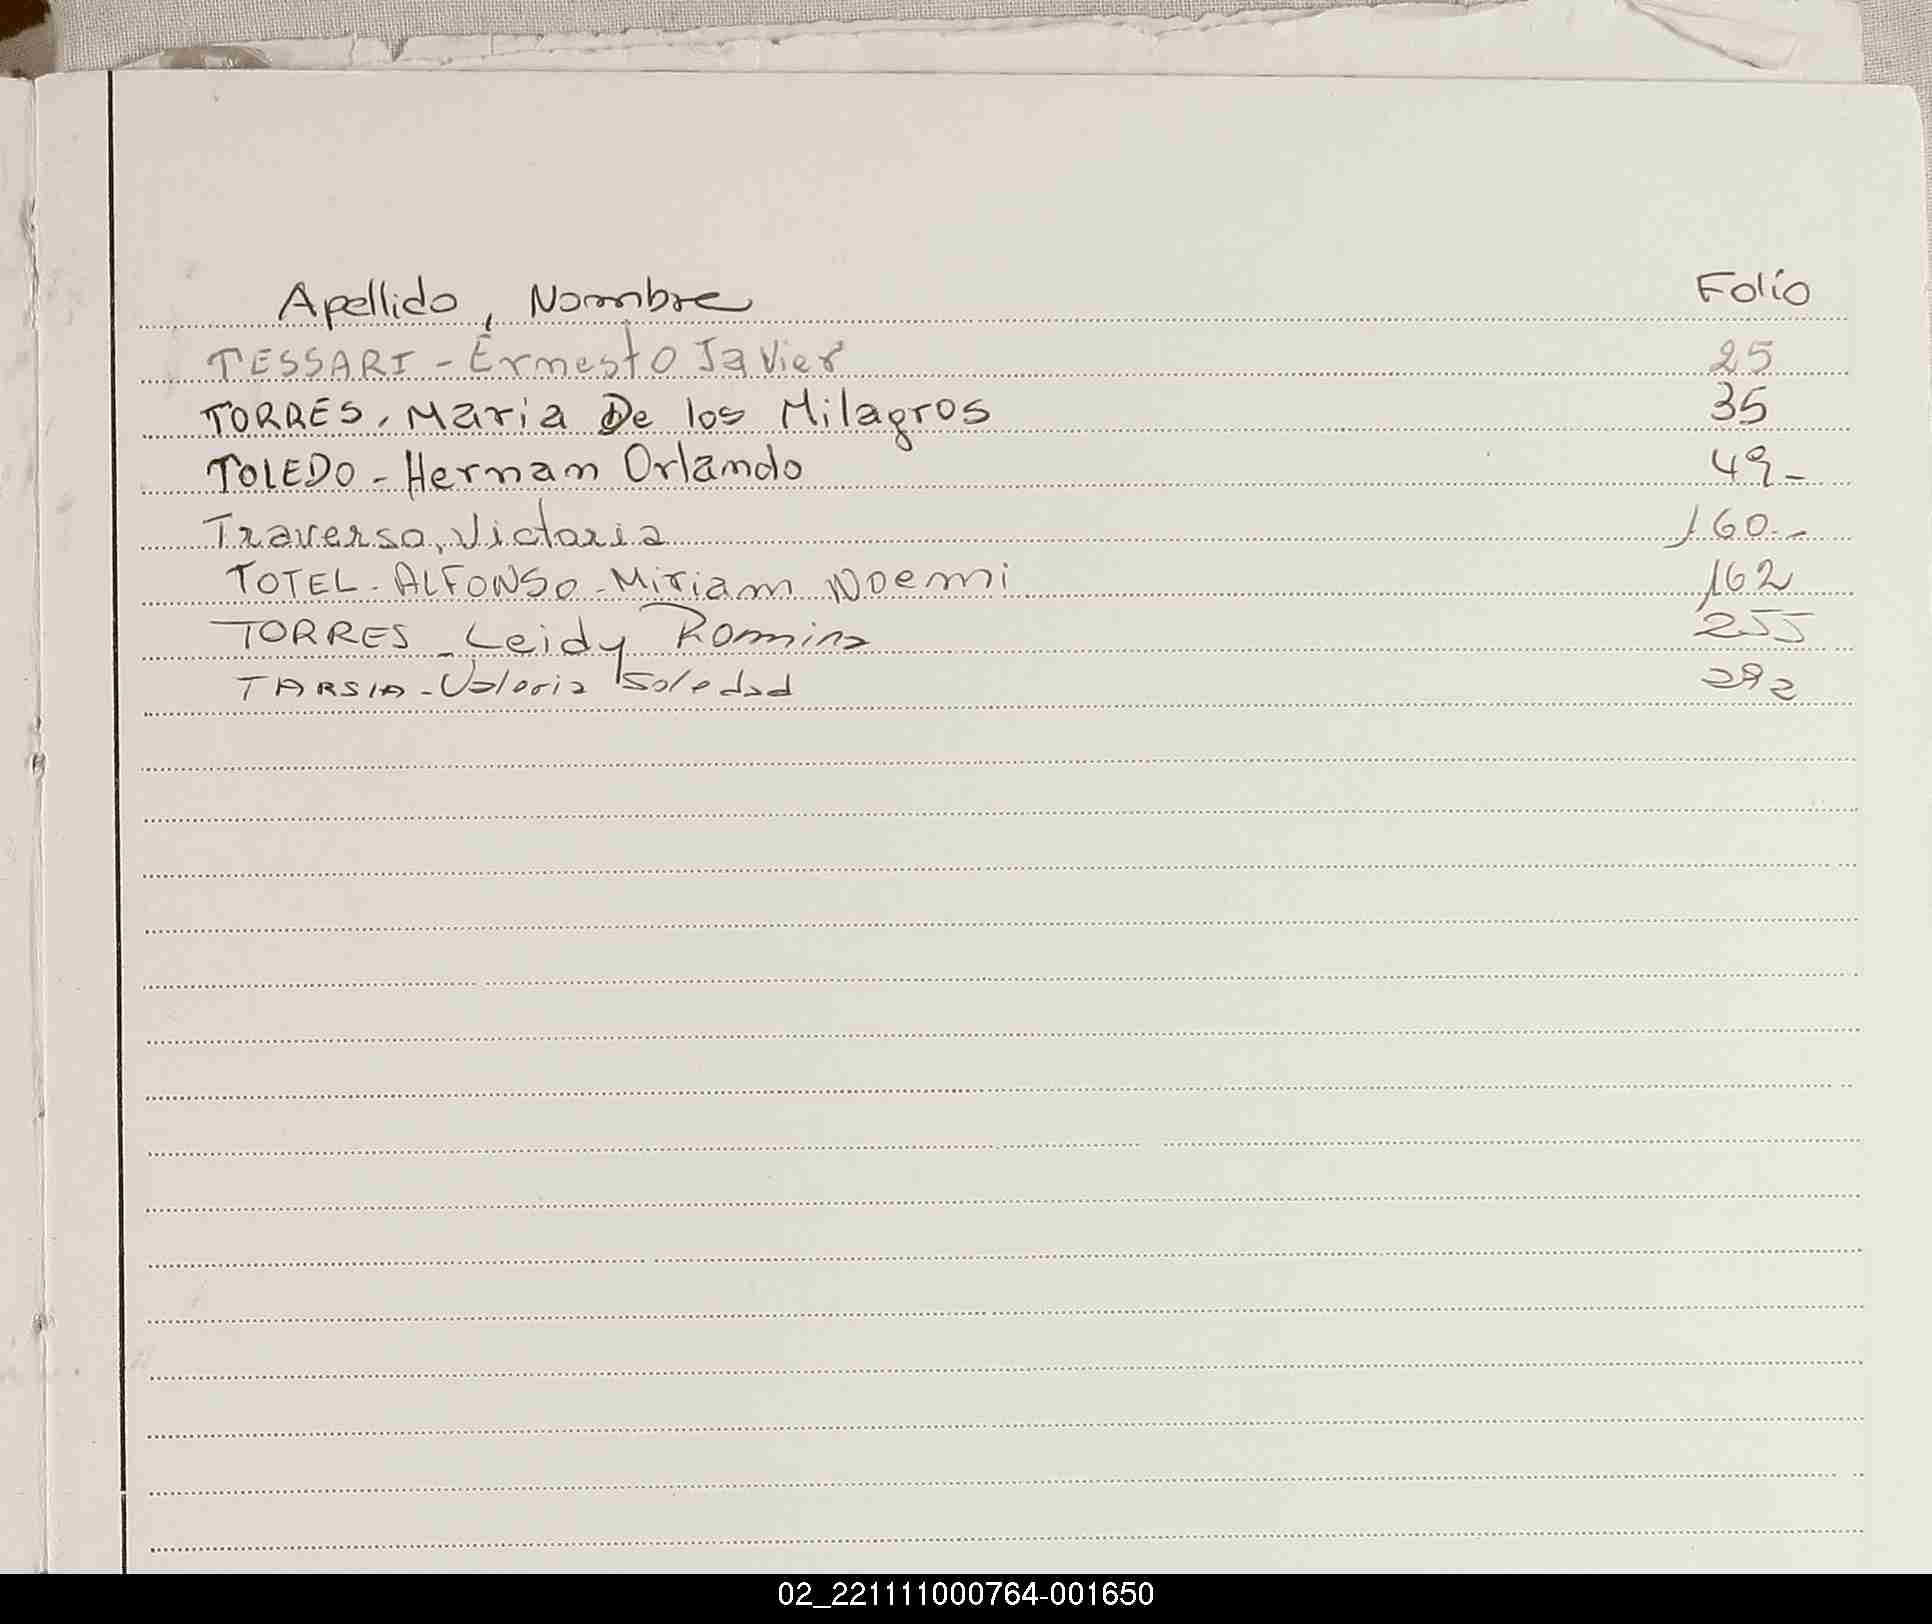 Apellido, Nombre Folio
TESSARI - Ernesto Javier 25
TORRES, Maria De los Milagros 35
TOLEDO - Hernam Orlando 49-
Traverso, Victoria 160.-
TOTEL - ALFONSO - Miriam Noemi 162
TORRES - Leidy Romina 255
TARSIA - Valeria Soledad 292
02_221111000764-001650